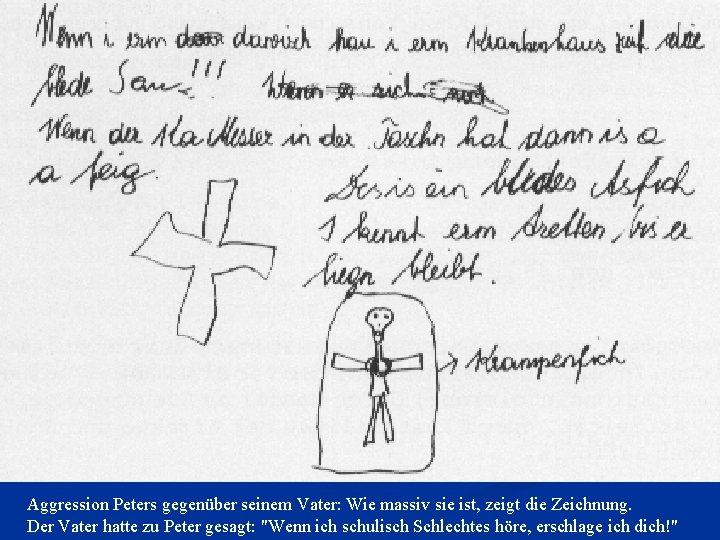 Wenn i erm darwisch hau i erm Krankenhaus reif die
blede Sau!!!
Wenn der Ka Messer in der Taschn hat dann is a
a feig.
Des is ein bledes Asfich
I kennt erm tretten, bis er
liegn bleibt.
→ Krampenfich
Aggression Peters gegenüber seinem Vater: Wie massiv sie ist, zeigt die Zeichnung.
Der Vater hatte zu Peter gesagt: "Wenn ich schulisch Schlechtes höre, erschlage ich dich!"